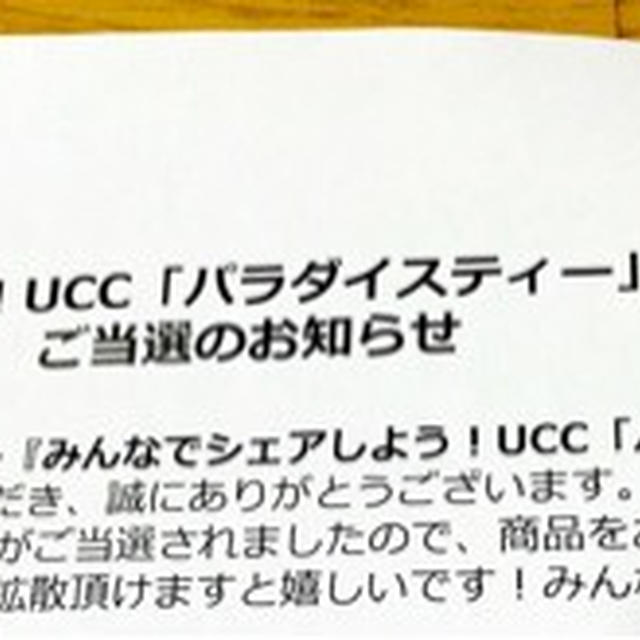 ! UCC「パラダイスティー」
ご当選のお知らせ
『みんなでシェアしよう！UCC「パ
だき、誠にありがとうございます。
がご当選されましたので、商品を
拡散頂けますと嬉しいです！みん